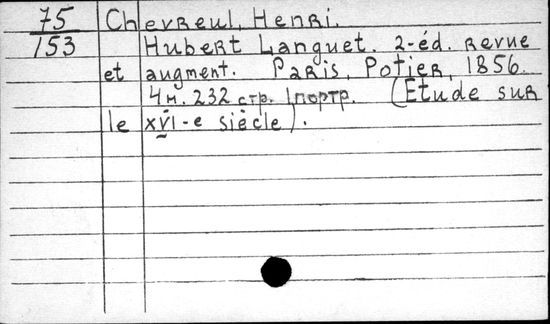 75 Chevreul, Henri.
153 Hubert Languet. 2-éd. revue
et augment. Paris, Potier, 1856.
4 н. 232 стр. 1 портр. (Étude sur
le XVI-e siècle).